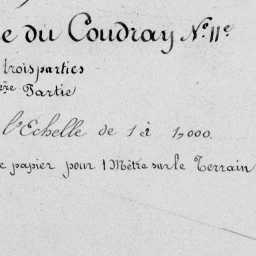 e du Coudray N.º 11ᵉ
trois parties
ère Partie
l'Echelle de 1 à 1,000.
e papier pour 1 Mètre sur le Terrain